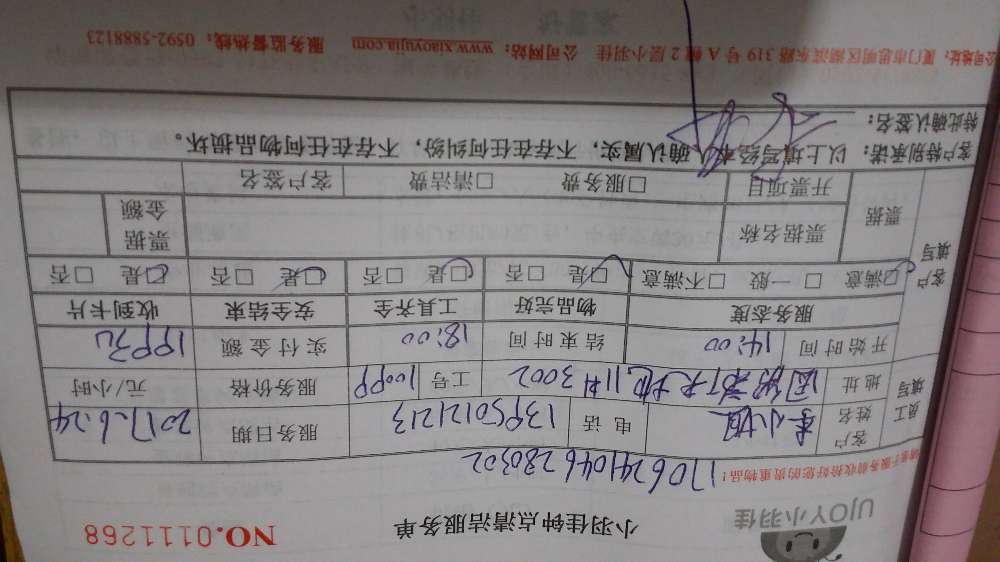 UJOY小羽佳
小羽佳钟点清洁服务单
NO.0111268
请客户服务前收拾好您的贵重物品！
1706241046280302
员工填写
客户姓名 李小姐 电话 13950121213 服务日期 2017.6.24
地址 11#3002 工号 服务价格 元/小时
开始时间 14:00 结束时间 18:00 实付金额 199元
客户填写
服务态度 物品完好 工具齐全 安全结束 收到卡片
□满意 □一般 □不满意 □是 □否 □是 □否 □是 □否 □是 □否
票据 票据名称 票据金额
开票项目 □服务费 □清洁费 客户签名
客户特别承诺：以上填写经本人确认属实，不存在任何纠纷，不存在任何物品损坏。
特此确认签名：
公司地址：厦门市思明区湖滨东路319号A幢2层小羽佳 公司网站：www.xiaoyujia.com 服务监督热线：0592-5888123